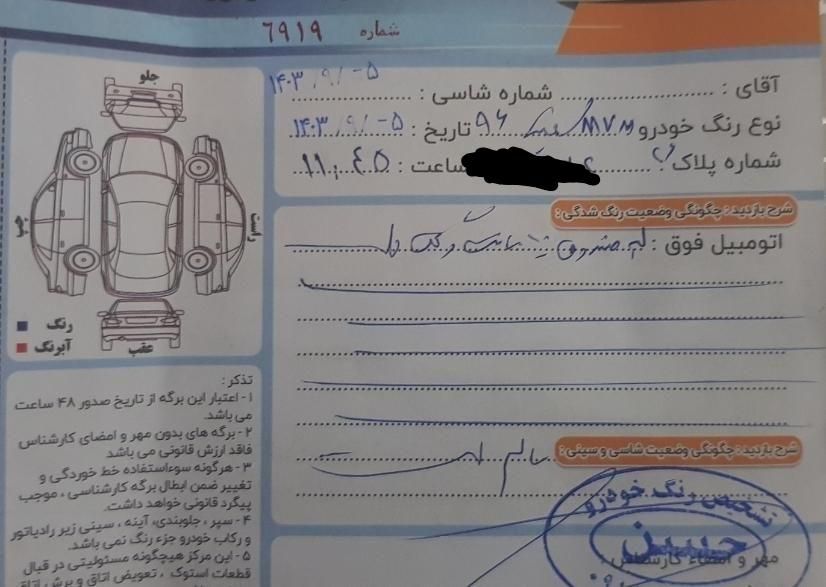 شماره ۶۹۱۹
آقای : شماره شاسی : ۱۴۰۳/۹/-۵
نوع رنگ خودرو MVM ۹۶ تاریخ : ۱۴۰۳/۹/-۵
شماره پلاک ساعت : ۱۱:۴۵
شرح بازدید : چگونگی وضعیت رنگ شدگی :
اتومبیل فوق : لبه صندوق
شرح بازدید : چگونگی وضعیت شاسی و سینی :
سالم است
تشخیص رنگ خودرو
حسین
مهر و امضاء کارشناس :
جلو
چپ
راست
عقب
رنگ
آبرنگ
تذکر :
۱- اعتبار این برگه از تاریخ صدور ۴۸ ساعت
می باشد.
۲- برگه های بدون مهر و امضای کارشناس
فاقد ارزش قانونی می باشد
۳- هرگونه سوءاستفاده خط خوردگی و
تغییر ضمن ابطال برگه کارشناسی ، موجب
پیگرد قانونی خواهد داشت.
۴- سپر ، جلوبندی، آینه ، سینی زیر رادیاتور
و رکاب خودرو جزء رنگ نمی باشد.
۵- این مرکز هیچگونه مسئولیتی در قبال
قطعات استوک ، تعویض اتاق و برش اتاق